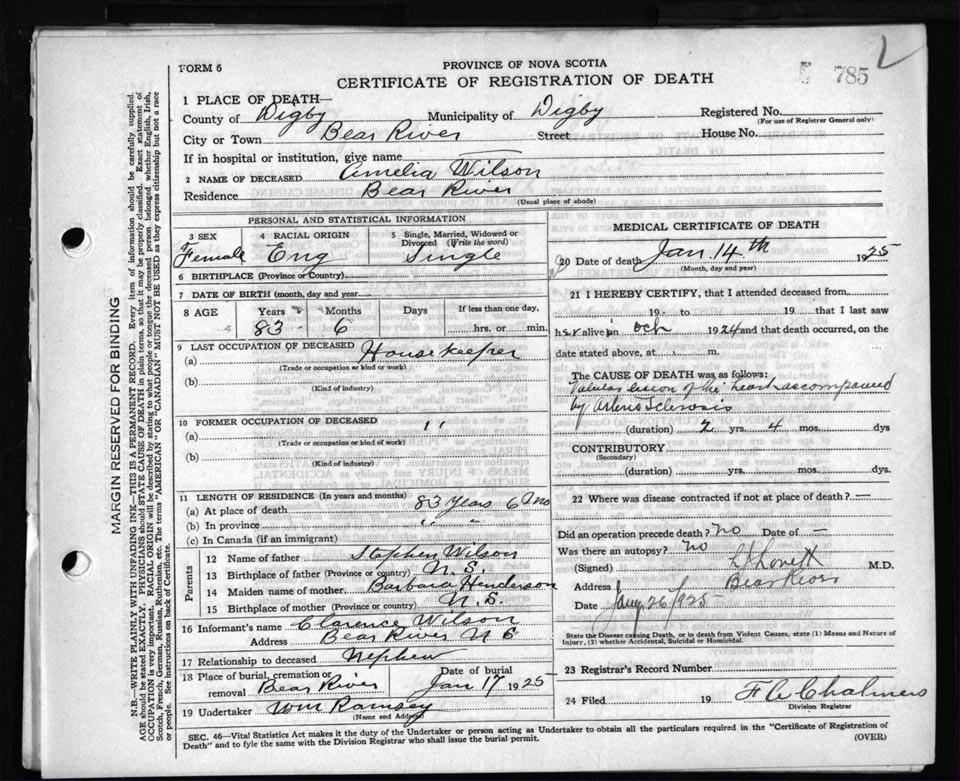 FORM 6
PROVINCE OF NOVA SCOTIA
CERTIFICATE OF REGISTRATION OF DEATH
785
1 PLACE OF DEATH—
County of Digby Municipality of Digby Registered No.
(For use of Registrar General only)
City or Town Bear River Street House No.
If in hospital or institution, give name
2 NAME OF DECEASED Amelia Wilson
Residence Bear River
(Usual place of abode)
PERSONAL AND STATISTICAL INFORMATION
3 SEX 4 RACIAL ORIGIN 5 Single, Married, Widowed or
Divorced (Write the word)
Female Eng Single
6 BIRTHPLACE (Province or Country)
7 DATE OF BIRTH (month, day and year)
8 AGE Years Months Days If less than one day,
83 - 6 hrs. or min.
9 LAST OCCUPATION OF DECEASED Housekeeper
(a)
(Trade or occupation or kind or work)
(b)
(Kind of industry)
10 FORMER OCCUPATION OF DECEASED "
(a)
(Trade or occupation or kind of work)
(b)
(Kind of industry)
11 LENGTH OF RESIDENCE (In years and months)
(a) At place of death 83 Years 6 mo
(b) In province " "
(c) In Canada (if an immigrant)
Parents
12 Name of father Stephen Wilson
13 Birthplace of father (Province or country) N.S.
14 Maiden name of mother Barbara Henderson
15 Birthplace of mother (Province or country) N.S.
16 Informant's name Clarence Wilson
Address Bear River N S
17 Relationship to deceased Nephew
18 Place of burial, cremation or Date of burial
removal Bear River Jan 17 1925
19 Undertaker Wm Ramsey
(Name and Address)
MEDICAL CERTIFICATE OF DEATH
20 Date of death Jan. 14th 1925
(Month, day and year)
21 I HEREBY CERTIFY, that I attended deceased from
19 to 19 that I last saw
her alive in Och 1924 and that death occurred, on the
date stated above, at m.
The CAUSE OF DEATH was as follows:
Valvular lesion of the heart accompanied
by Arterio Sclerosis
(duration) 2 yrs. 4 mos. dys
CONTRIBUTORY
(Secondary)
(duration) yrs. mos. dys
22 Where was disease contracted if not at place of death? —
Did an operation precede death? no Date of —
Was there an autopsy? no
(Signed) Lovett M.D.
Address Bear River
Date Jany 26/1925
State the Disease causing Death, or in death from Violent Causes, state (1) Means and Nature of
Injury, (2) whether Accidental, Suicidal or Homicidal.
23 Registrar's Record Number
24 Filed 19 Chalmers
Division Registrar
SEC. 46—Vital Statistics Act makes it the duty of the Undertaker or person acting as Undertaker to obtain all the particulars required in the "Certificate of Registration of
Death" and to fyle the same with the Division Registrar who shall issue the burial permit. (OVER)
MARGIN RESERVED FOR BINDING
N.B.—WRITE PLAINLY WITH UNFADING INK—THIS IS A PERMANENT RECORD. Every item of information should be carefully supplied.
AGE should be stated EXACTLY. PHYSICIANS should STATE CAUSE OF DEATH in plain terms, so that it may be properly classified. Exact statement of
OCCUPATION is very important. RACIAL ORIGIN will be described by stating to what people or tongue the deceased person belonged whether English, Irish,
Scotch, French, German, Russian, Ruthenian, etc. The terms "AMERICAN" OR "CANADIAN" MUST NOT BE USED as they express citizenship but not a race
or people. See instructions on back of Certificate.